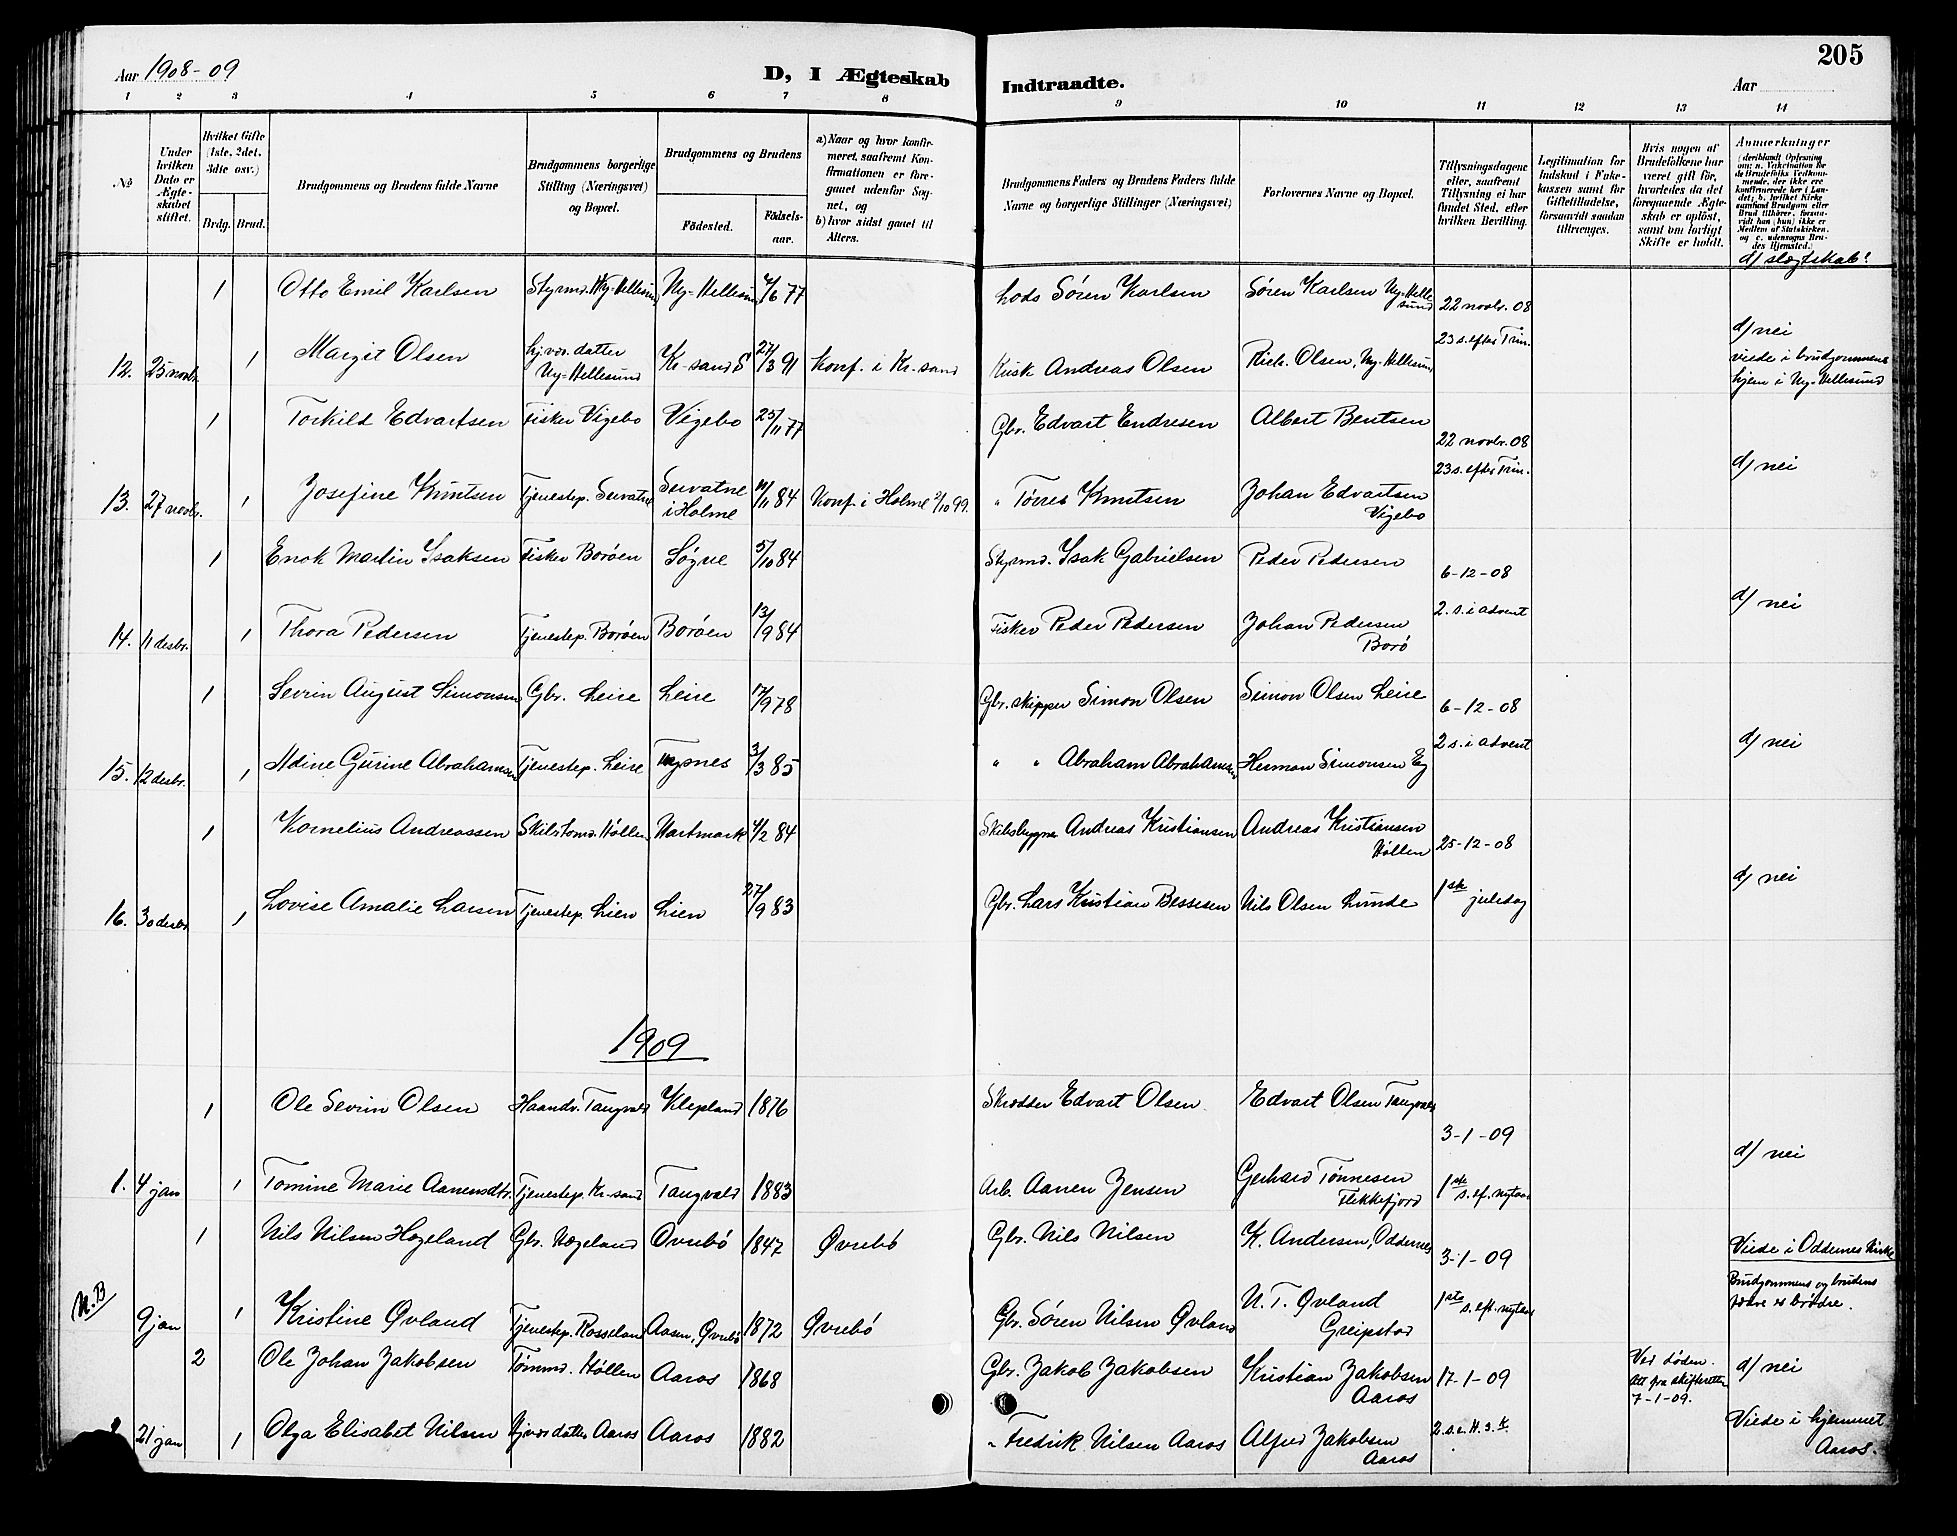 205
Aar 1908-09
D, I Ægteskab Indtraadte.
Aar
1 2 3 4 5 6 7 8 9 10 11 12 13 14
No.
Under hvilken Dato er Ægteskabet stiftet.
Hvilket Gifte (1ste, 2det, 3die osv.)
Brdg. Brud.
Brudgommens og Brudens fulde Navne
Brudgommens borgerlige Stilling (Næringsvei) og Bopæl.
Brudgommens og Brudens
Fødested.
Fødselsaar.
a) Naar og hvor konfirmeret, saafremt Konfirmationen er foregaaet udenfor Sognet, og
b) hvor sidst gaaet til Alters.
Brudgommens Faders og Brudens Faders fulde Navne og borgerlige Stillinger (Næringsvei)
Forlovernes Navne og Bopæl.
Tillysningsdagene eller, saafremt Tillysning ei har fundet Sted, efter hvilken Bevilling.
Legitimation for Indskud i Enkekassen samt for Giftetilladelse, forsaavidt saadan tiltrænges.
Hvis nogen af Brudefolkene har været gift før, hvorledes da det foregaaende Ægteskab er opløst, samt om lovligt Skifte er holdt.
Anmerkninger
(deriblandt Oplysning om: a. Vakcination for de Brudefolks Vedkommende, der ikke ere konfirmerede her i Landet; b. hvilket Kirkesamfund Brudgom eller Brud tilhører, forsaavidt han (hun) ikke er Medlem af Statskirken, og c. udensogns Brudes Hjemsted.)
d/ slægtskab?
1 Otto Emil Karlsen Styrmd. Ny-Hellesund Ny-Hellesund 4/6 77 Lods Søren Karlsen Søren Karlsen Ny-Hellesund 22 novbr. 08
12. 25 novbr. 1 Margit Olsen hjvær. datter Ny-Hellesund Kr-sand S 27/3 91 Konf. i Kr-sand Kusk Andreas Olsen Rich. Olsen, Ny-Hellesund 23 s. efter Trin. d/ nei
viede i brudgommens hjem i Ny-Hellesund
1 Torkild Edvartsen Fisker Vigebo Vigebo 25/11 77 Gbr. Edvart Endresen Albert Bentsen 22 novbr. 08
13. 27 novbr. 1 Josefine Knutsen Tjenestep. Servatne Servatne i Holme 11/11 84 Konf. i Holme 1/10 99. " Tørres Knutsen Johan Edvartsen Vigebo 23 s. efter Trin. d/ nei
1 Enok Martin Isaksen Fisker Borøen Søgne 5/10 84 Styrmd. Isak Gabrielsen Peder Pedersen 6-12-08
14. 11 desbr. 1 Thora Pedersen Tjenestep. Borøen Borøen 13/9 84 Fisker Peder Pedersen Johan Pedersen Borø 2. s. i advent d/ nei
1 Sevrin August Simonsen Gbr. Leire Leire 17/9 78 Gbr. skipper Simon Olsen Simon Olsen Leire 6-12-08
15. 12 desbr. 1 Adine Gurine Abrahamsen Tjenestep. Leire 3/3 85 " " Abraham Abrahamsen Herman Simonsen Eg 2 s. i advent d/ nei
1 Kornelius Andreassen Skibstømd. Høllen Hartmark 4/2 84 Skibsbygger Andreas Kristiansen Andreas Kristiansen Høllen 25-12-08
16. 30 desbr. 1 Lovise Amalie Larsen Tjenestep. Lien Lien 27/9 83 Gbr. Lars Kristian Bessesen Nils Olsen Lunde 1ste juledag d/ nei
1909
1 Ole Sevrin Olsen Haandv. Tangvald Klepland 1876 Skrædder Edvart Olsen Edvart Olsen Tangvald 3-1-09
1. 4 jan 1 Tomine Marie Aanensdtr. Tjenestep. Kr-sand Tangvald 1883 Arb. Aanen Jensen Gerhard Tønnesen Flekkefjord 1ste s. ef. nytaar d/ nei
1 Nils Nilsen Hægeland Gbr. Hægeland Øvrebø 1847 Øvrebø Gbr. Nils Nilsen K. Andersen, Oddernes 3-1-09 Viede i Oddernes Kirke
N.B 9 jan 1 Kristine Øvland Tjenestep. Rosseland Aasen, Øvrebø 1872 Øvrebø Gbr. Søren Nilsen Øvland N. T. Øvland Greipstad 1ste s. eft. nytaar Brudgommens og brudens fædre er brødre.
2 Ole Johan Jakobsen Tømmd. Høllen Aaros 1868 Gbr. Jakob Jakobsen Kristian Jakobsen Aaros 17-1-09 Ved døden. Att fra skifteretten 7-1-09. d/ nei
21 jan 1 Olga Elisabet Nilsen Hjvær datter Aaros Aaros 1882 " Fredrik Nilsen Aaros Alfred Jakobsen Aaros 2. s. e. H. 3. K. Viede i hjemmet Aaros.